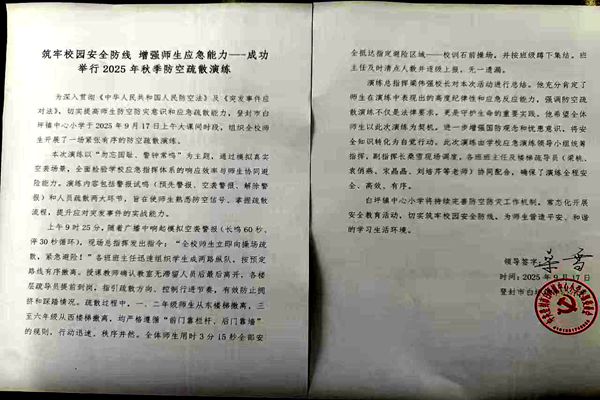 筑牢校园安全防线 增强师生应急能力——成功
举行 2025 年秋季防空疏散演练
为深入贯彻《中华人民共和国人民防空法》及《突发事件应
对法》，切实提高师生防空防灾意识和应急避险能力，登封市白
坪镇中心小学于 2025 年 9 月 17 日上午大课间时段，组织全校师
生开展了一场紧张有序的防空疏散演练。
本次演练以“勿忘国耻、警钟常鸣”为主题，通过模拟真实
空袭场景，全面检验学校应急指挥体系的响应效率与师生协同避
险能力。演练内容包括警报试鸣（预先警报、空袭警报、解除警
报）和人员疏散两大环节，旨在使师生熟悉防空信号、掌握疏散
流程，提升应对突发事件的实战能力。
上午 9 时 25 分，随着广播中响起模拟空袭警报（长鸣 60 秒、
停 30 秒循环），现场总指挥发出指令：“全校师生立即向操场疏
散，紧急避险！”各班班主任迅速组织学生成两路纵队，按预定
路线有序撤离。授课教师确认教室无滞留人员后最后离开，各楼
层疏导员提前到岗，指引疏散方向、控制行进节奏，有效防止拥
挤和踩踏情况。疏散过程中，一、二年级师生从东楼梯撤离，三
至六年级从西楼梯撤离，均严格遵循“前门靠栏杆、后门靠墙”
的规则，行动迅速、秩序井然。全体师生用时 3 分 15 秒全部安
全抵达指定避险区域——校训石前操场，并按班级蹲下集结，班
主任及时清点人数并逐级上报，无一遗漏。
演练总指挥梁伟强校长对本次活动进行总结。他充分肯定了
师生在演练中表现出的高度纪律性和应急反应能力，强调防空疏
散演练不仅是法律要求，更是守护生命的重要实践。他希望全体
师生以此次演练为契机，进一步增强国防观念和忧患意识，将安
全知识转化为自觉行动。此次演练由学校应急演练领导小组统筹
指挥，副指挥长桑雪现场调度，各班班主任及楼梯疏导员（梁桃、
袁俏燕、宋晶晶、刘培芹等老师）协同配合，确保了演练全程安
全、高效、有序。
白坪镇中心小学将持续完善防空防灾工作机制，常态化开展
安全教育活动，切实筑牢校园安全防线，为师生营造平安、和谐
的学习生活环境。
领导签字：桑雪
时间：2025 年 9 月 17 日
登封市白坪